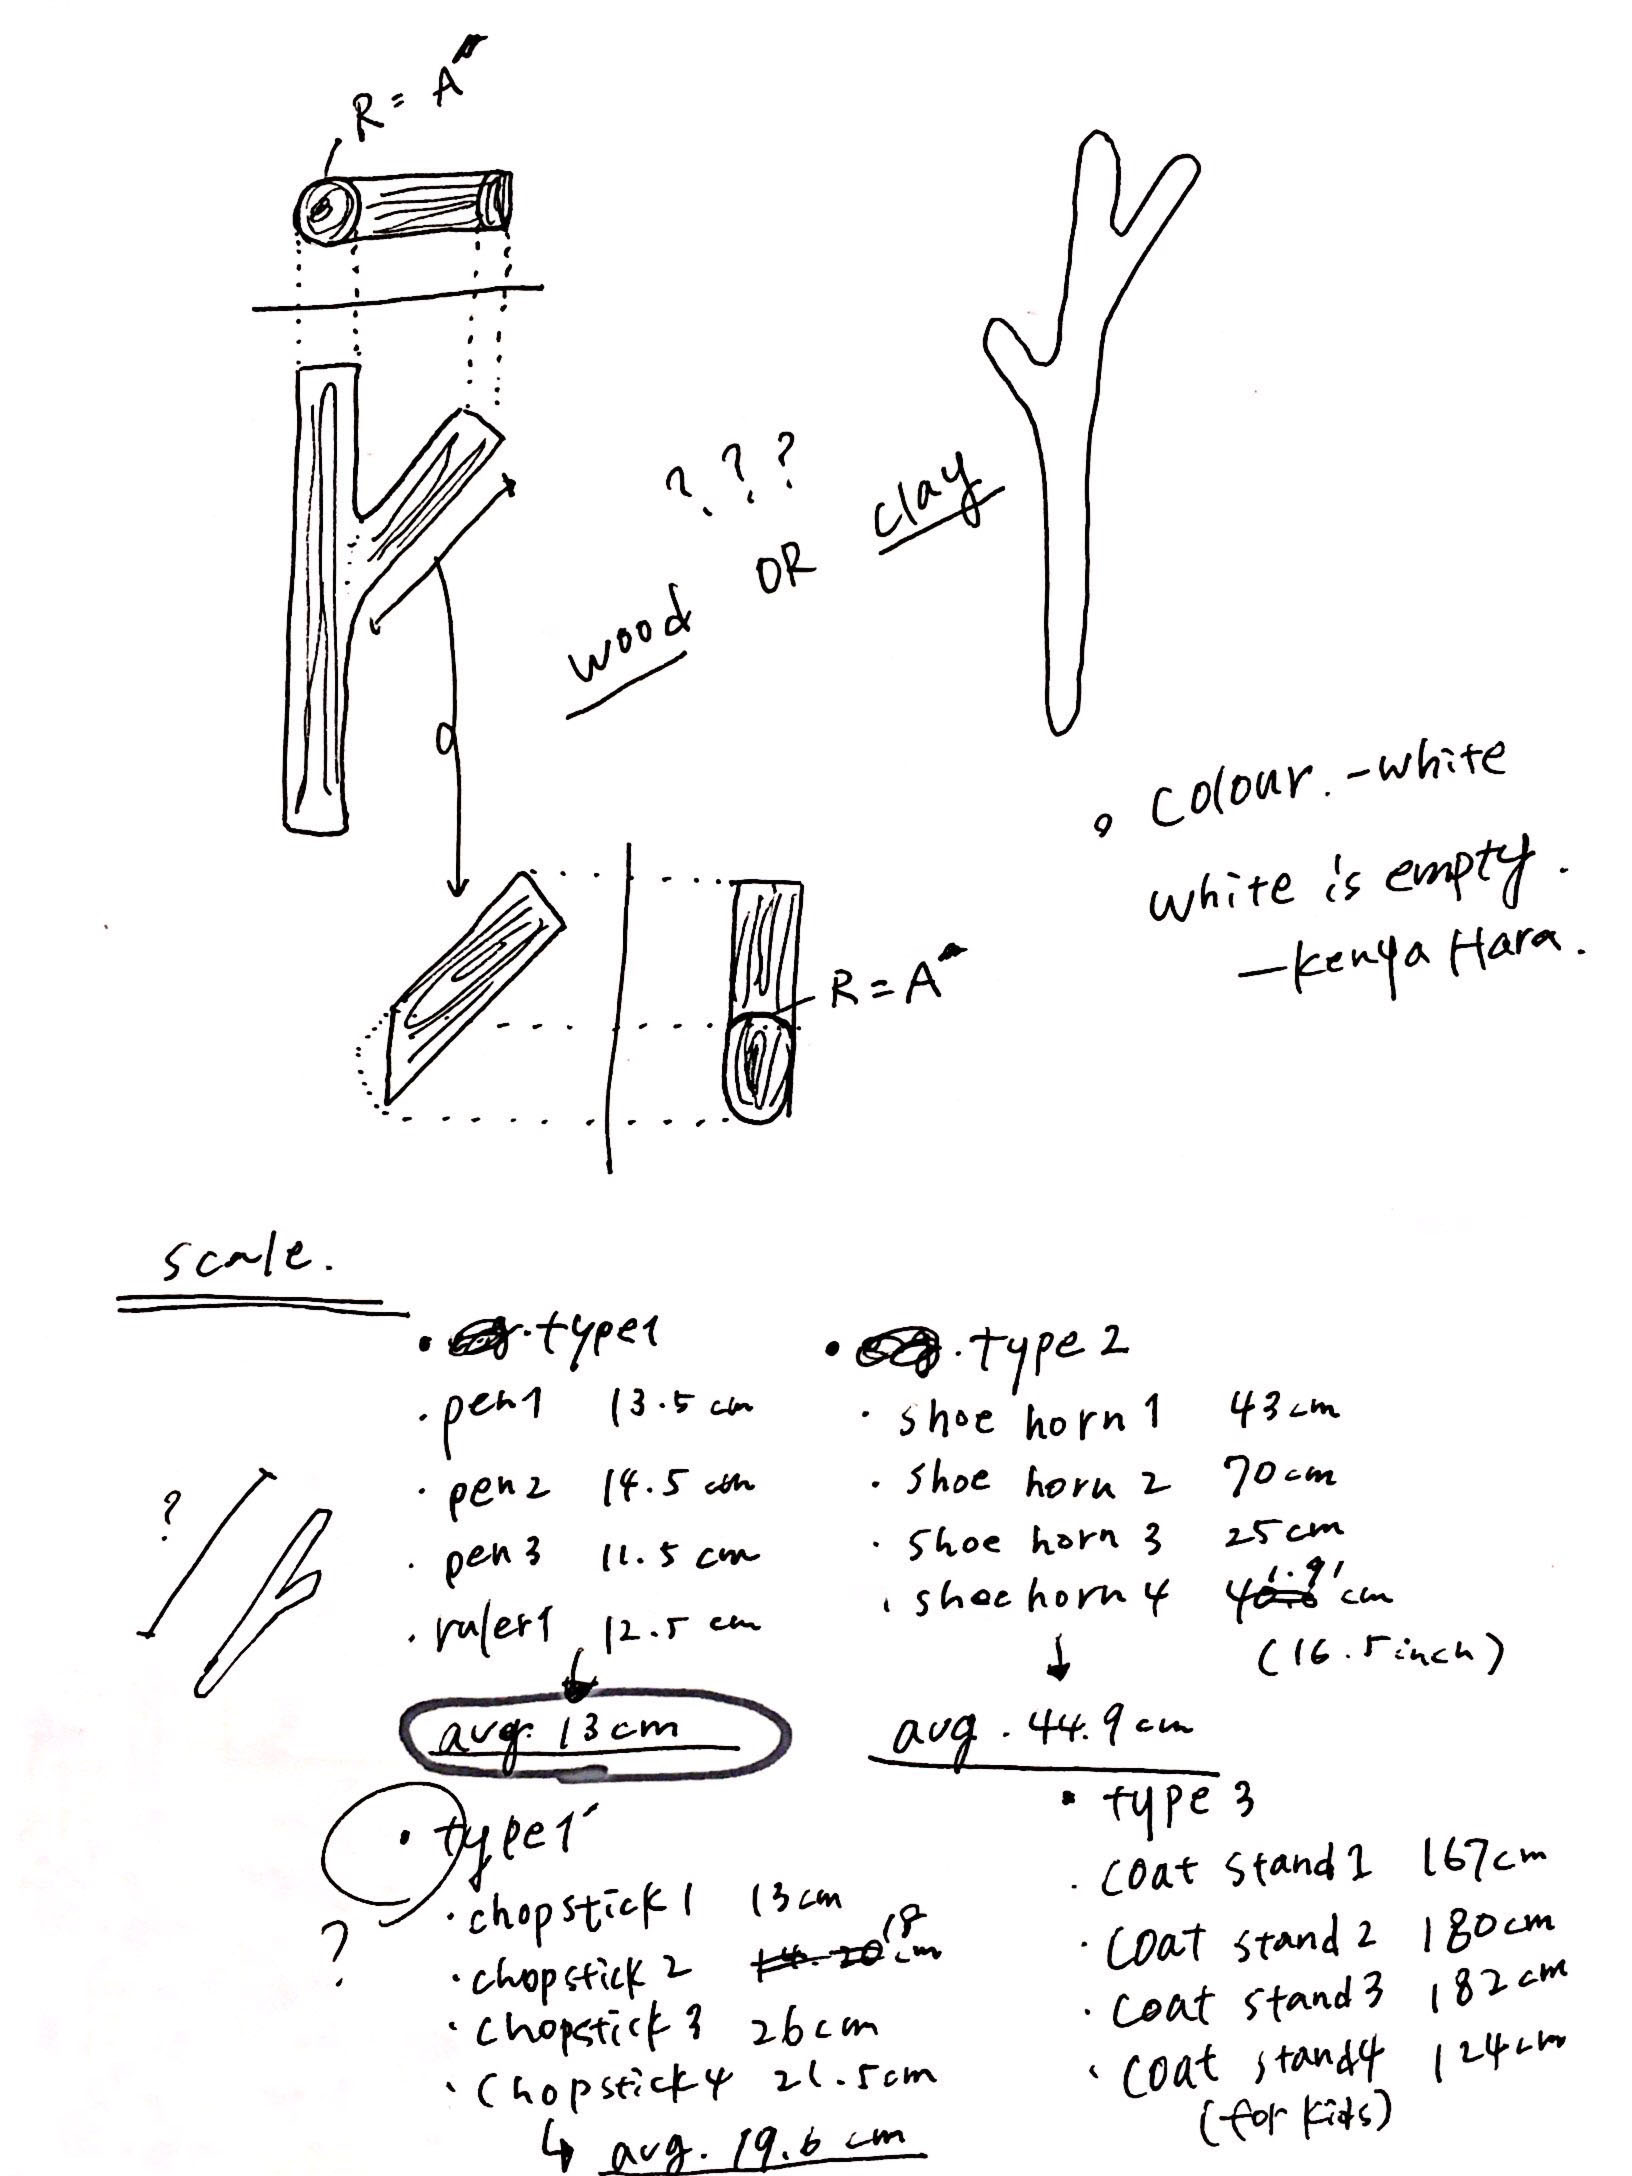 R = A
???
wood OR clay
colour. - white
white is empty.
- Kenya Hara.
R = A
scale.
?
• type1
· pen1 13.5 cm
· pen2 14.5 cm
· pen3 11.5 cm
· ruler1 12.5 cm
avg. 13cm
• type 2
· shoe horn 1 43cm
· shoe horn 2 70cm
· shoe horn 3 25cm
· shoe horn 4 41.91 cm
(16.5 inch)
avg. 44.9 cm
• type1'
?
· chopstick 1 13cm
· chopstick 2 18 cm
· chopstick 3 26cm
· chopstick 4 21.5cm
avg. 19.6 cm
• type 3
· coat stand 1 167cm
· coat stand 2 180cm
· coat stand 3 182cm
· coat stand4 124cm
(for kids)